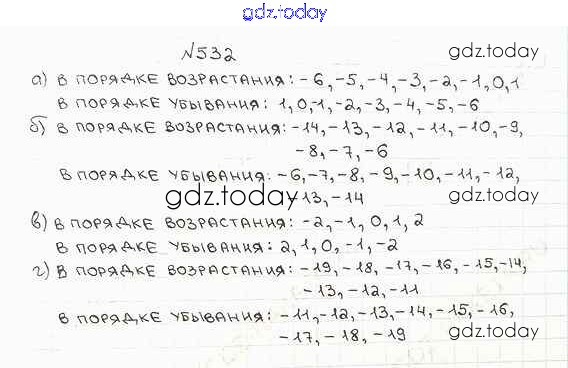 gdz.today
№532
gdz.today
а) В ПОРЯДКЕ ВОЗРАСТАНИЯ: -6, -5, -4, -3, -2, -1, 0, 1
В ПОРЯДКЕ УБЫВАНИЯ: 1, 0, -1, -2, -3, -4, -5, -6
б) В ПОРЯДКЕ ВОЗРАСТАНИЯ: -14, -13, -12, -11, -10, -9,
-8, -7, -6
В ПОРЯДКЕ УБЫВАНИЯ: -6, -7, -8, -9, -10, -11, -12,
gdz.today
-13, -14
gdz.today
в) В ПОРЯДКЕ ВОЗРАСТАНИЯ: -2, -1, 0, 1, 2
В ПОРЯДКЕ УБЫВАНИЯ: 2, 1, 0, -1, -2
г) В ПОРЯДКЕ ВОЗРАСТАНИЯ: -19, -18, -17, -16, -15, -14,
-13, -12, -11
В ПОРЯДКЕ УБЫВАНИЯ: -11, -12, -13, -14, -15, -16,
-17, -18, -19
gdz.today
gdz.today